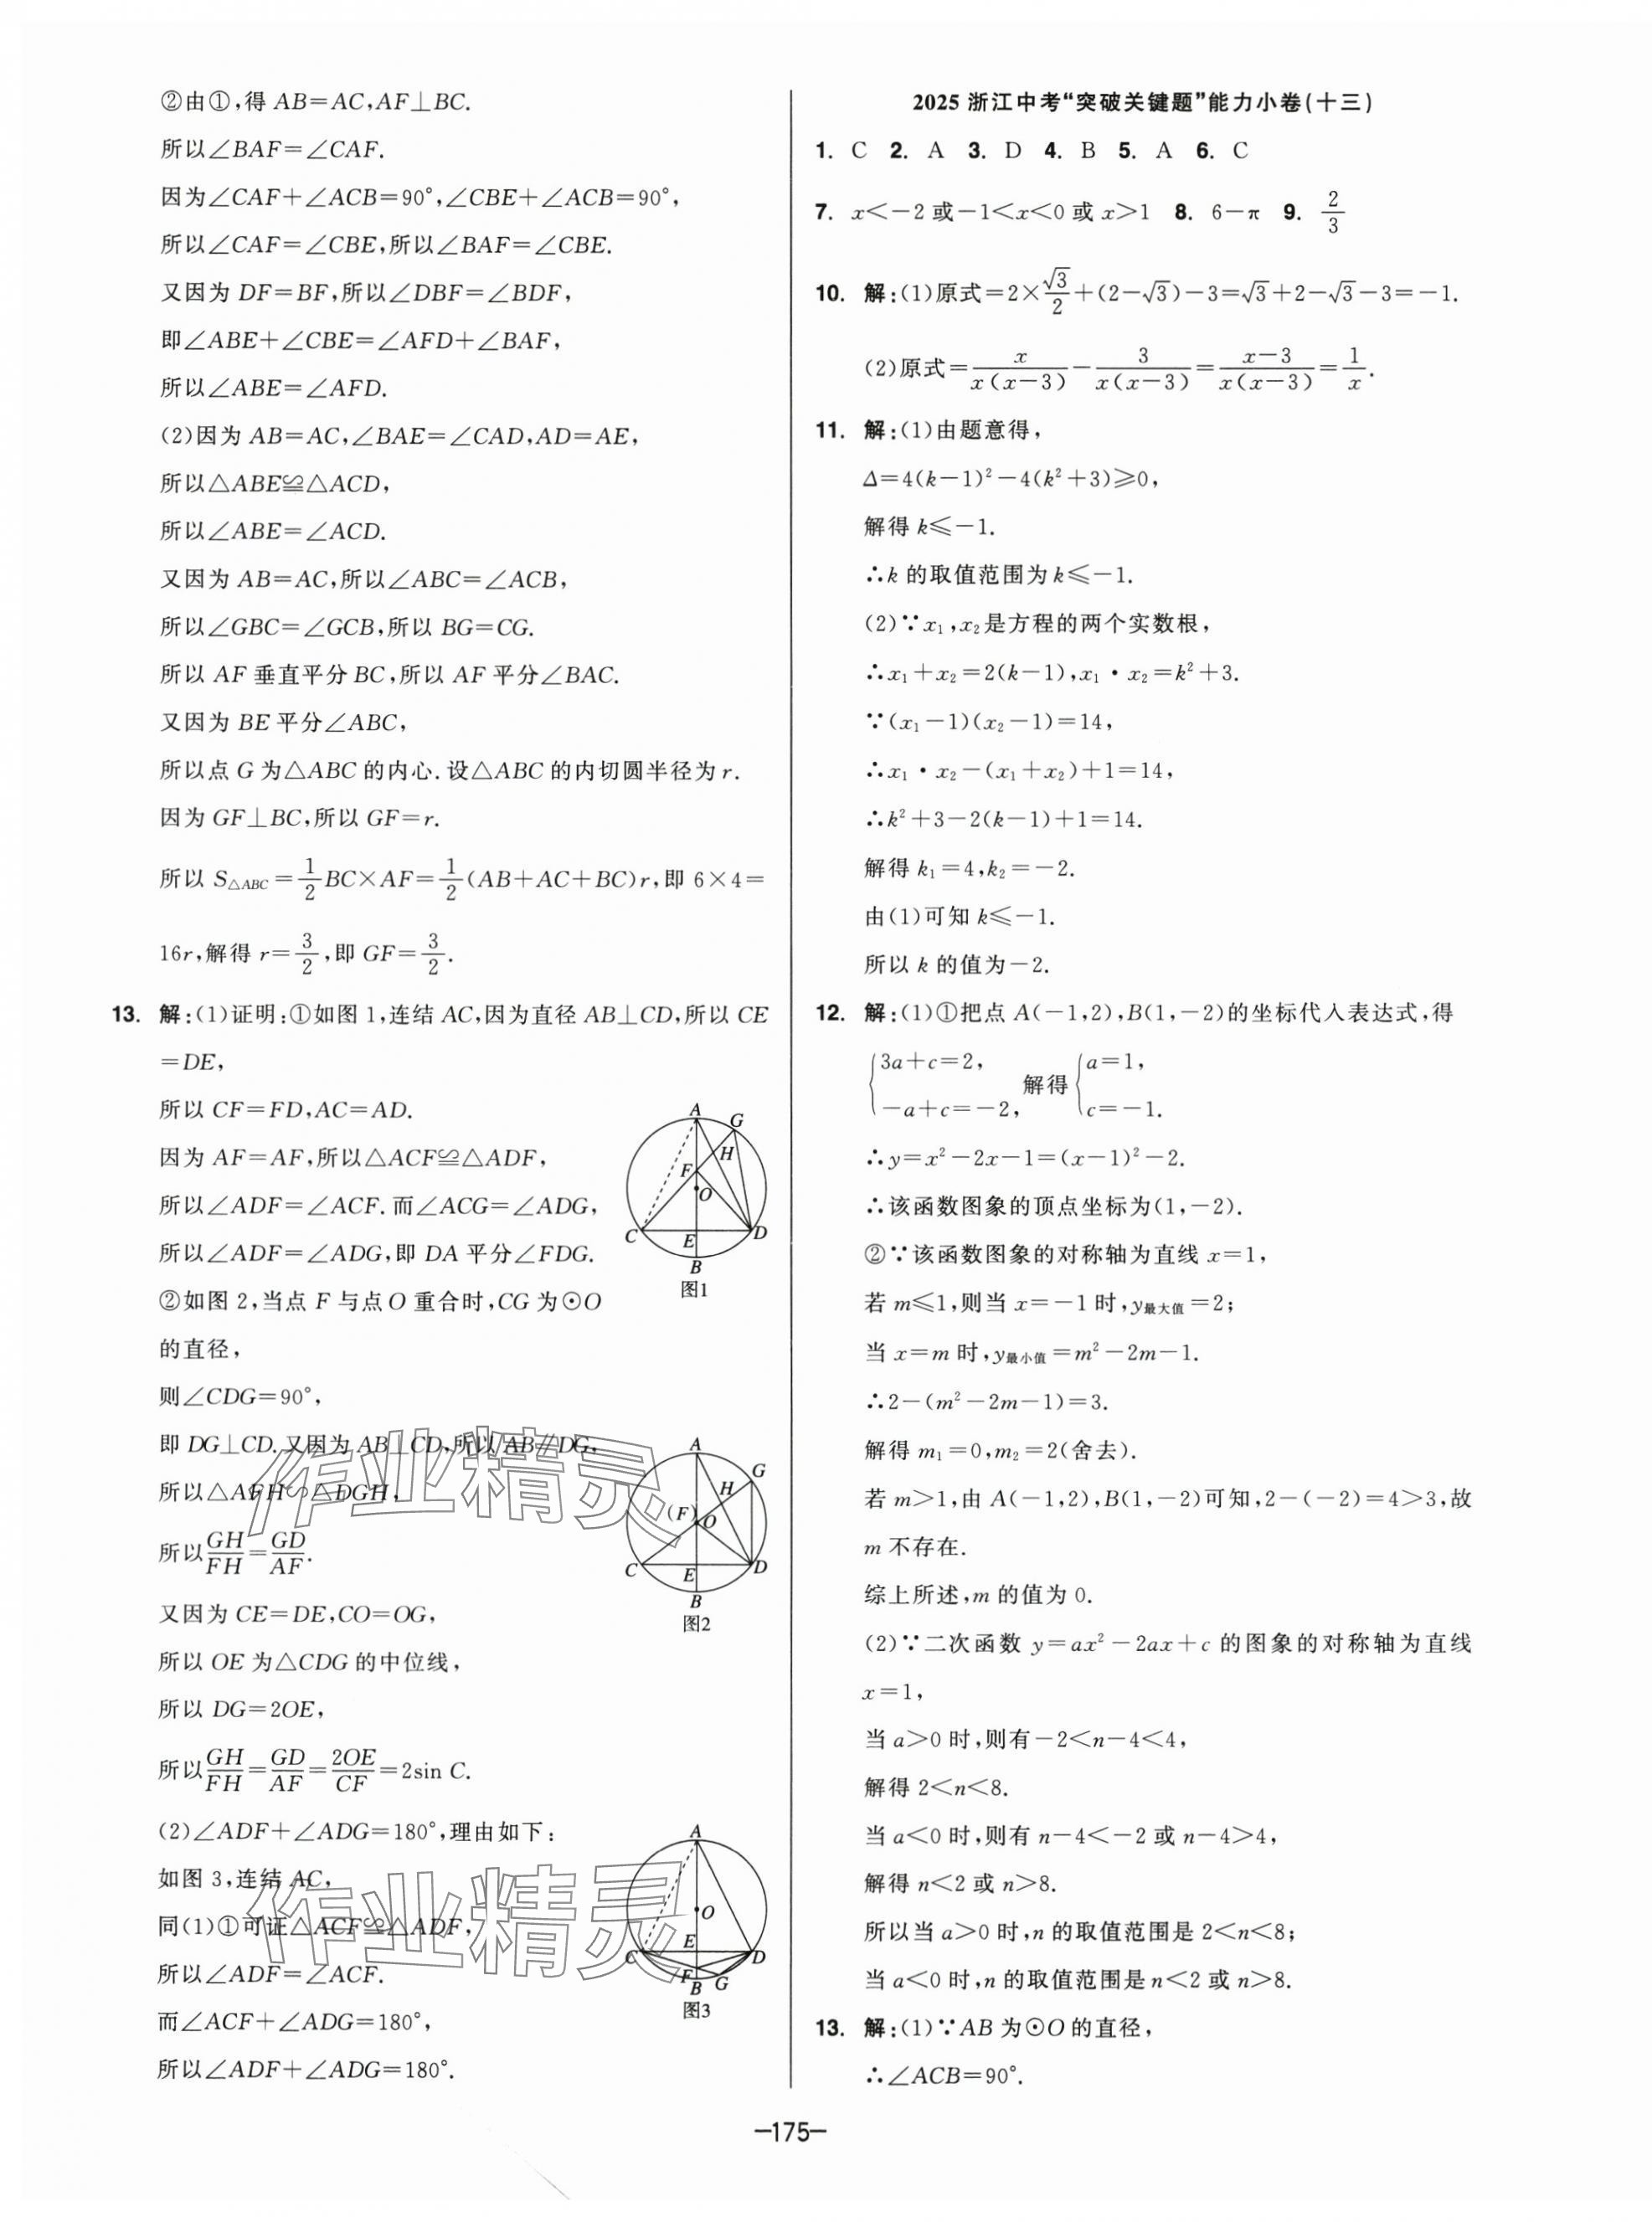 ②由①,得 AB=AC,AF⊥BC.
所以∠BAF=∠CAF.
因为∠CAF+∠ACB=90°,∠CBE+∠ACB=90°,
所以∠CAF=∠CBE,所以∠BAF=∠CBE.
又因为 DF=BF,所以∠DBF=∠BDF,
即∠ABE+∠CBE=∠AFD+∠BAF,
所以∠ABE=∠AFD.
(2)因为 AB=AC,∠BAE=∠CAD,AD=AE,
所以△ABE≌△ACD,
所以∠ABE=∠ACD.
又因为 AB=AC,所以∠ABC=∠ACB,
所以∠GBC=∠GCB,所以 BG=CG.
所以 AF 垂直平分 BC,所以 AF 平分∠BAC.
又因为 BE 平分∠ABC,
所以点 G 为△ABC 的内心.设△ABC 的内切圆半径为 r.
因为 GF⊥BC,所以 GF=r.
所以 S△ABC=1/2 BC×AF=1/2(AB+AC+BC)r,即 6×4=
16r,解得 r=3/2,即 GF=3/2.
13. 解:(1)证明:①如图 1,连结 AC,因为直径 AB⊥CD,所以 CE
=DE,
所以 CF=FD,AC=AD.
因为 AF=AF,所以△ACF≌△ADF,
所以∠ADF=∠ACF.而∠ACG=∠ADG,
所以∠ADF=∠ADG,即 DA 平分∠FDG.
A G H F O C E D B
图1
②如图 2,当点 F 与点 O 重合时,CG 为⊙O
的直径,
则∠CDG=90°,
即 DG⊥CD.又因为 AB⊥CD,所以 AB∥DG,
所以△AFH∽△DGH,
所以GH/FH=GD/AF.
A G H (F) O C E D B
图2
又因为 CE=DE,CO=OG,
所以 OE 为△CDG 的中位线,
所以 DG=2OE,
所以GH/FH=GD/AF=2OE/CF=2sin C.
(2)∠ADF+∠ADG=180°,理由如下:
如图 3,连结 AC,
同(1)①可证△ACF≌△ADF,
所以∠ADF=∠ACF.
而∠ACF+∠ADG=180°,
所以∠ADF+∠ADG=180°.
A O E C D F B G
图3
作业精灵
作业精灵
2025 浙江中考“突破关键题”能力小卷(十三)
1. C 2. A 3. D 4. B 5. A 6. C
7. x<-2 或-1<x<0 或 x>1 8. 6-π 9. 2/3
10. 解:(1)原式=2×√3/2+(2-√3)-3=√3+2-√3-3=-1.
(2)原式=x/x(x-3)-3/x(x-3)=x-3/x(x-3)=1/x.
11. 解:(1)由题意得,
Δ=4(k-1)²-4(k²+3)≥0,
解得 k≤-1.
∴k 的取值范围为 k≤-1.
(2)∵x₁,x₂是方程的两个实数根,
∴x₁+x₂=2(k-1),x₁·x₂=k²+3.
∵(x₁-1)(x₂-1)=14,
∴x₁·x₂-(x₁+x₂)+1=14,
∴k²+3-2(k-1)+1=14.
解得 k₁=4,k₂=-2.
由(1)可知 k≤-1.
所以 k 的值为-2.
12. 解:(1)①把点 A(-1,2),B(1,-2)的坐标代入表达式,得
{3a+c=2, -a+c=-2, 解得 {a=1, c=-1.
∴y=x²-2x-1=(x-1)²-2.
∴该函数图象的顶点坐标为(1,-2).
②∵该函数图象的对称轴为直线 x=1,
若 m≤1,则当 x=-1 时,y最大值=2;
当 x=m 时,y最小值=m²-2m-1.
∴2-(m²-2m-1)=3.
解得 m₁=0,m₂=2(舍去).
若 m>1,由 A(-1,2),B(1,-2)可知,2-(-2)=4>3,故
m 不存在.
综上所述,m 的值为 0.
(2)∵二次函数 y=ax²-2ax+c 的图象的对称轴为直线
x=1,
当 a>0 时,则有-2<n-4<4,
解得 2<n<8.
当 a<0 时,则有 n-4<-2 或 n-4>4,
解得 n<2 或 n>8.
所以当 a>0 时,n 的取值范围是 2<n<8;
当 a<0 时,n 的取值范围是 n<2 或 n>8.
13. 解:(1)∵AB 为⊙O 的直径,
∴∠ACB=90°.
-175-